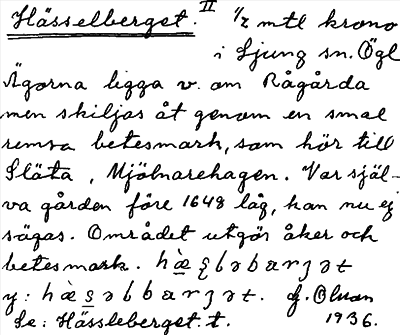 Hässelberget. II 1/2 mtl krono
i Ljung sn. Ögl
Ägorna ligga v. om Rågårda
men skiljas åt genom en smal
remsa betesmark, som hör till
Släta, Mjölnarehagen. Var själ-
va gården före 1648 låg, kan nu ej
sägas. Området utgör åker och
betesmark. hὰʂləbarʒət
y: hὰsəlbarʒət. 
Se: Hässleberget. t. 1936.